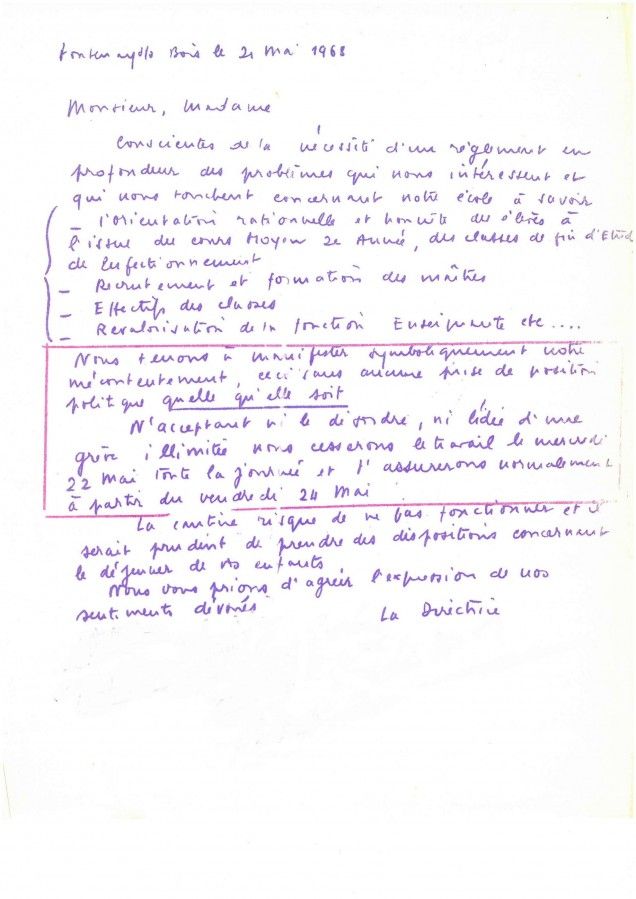 Fontenay s/s Bois le 21 Mai 1968
Monsieur, Madame
Conscientes de la nécessité d'un règlement en
profondeur des problèmes qui nous intéressent et
qui nous touchent concernant notre école à savoir
_ l'Orientation rationnelle et honnête des élèves à
l'issue du cours Moyen 2e Année, des classes de fin d'Etud
de Perfectionnement
_ Recrutement et formation des maîtres
_ Effectifs des classes
_ Revalorisation de la fonction Enseignante etc....
Nous tenons à manifester symboliquement notre
mécontentement, ceci sans aucune prise de position
politique quelle qu'elle soit
N'acceptant ni le désordre, ni l'idée d'une
grève illimitée nous cesserons le travail le mercredi
22 Mai toute la journée et l'assurerons normalement
à partir du vendredi 24 Mai
La cantine risque de ne pas fonctionner et il
serait prudent de prendre des dispositions concernant
le déjeuner de vos enfants
Nous vous prions d'agréer l'expression de nos
sentiments dévoués La Directrice